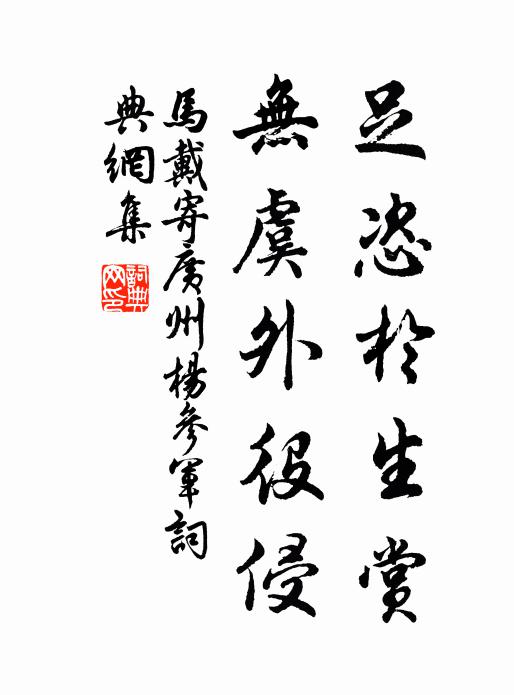 足恣於生賞
無虞外役侵
馬戴寄廣州楊參軍詞
典網集
詞典
网印